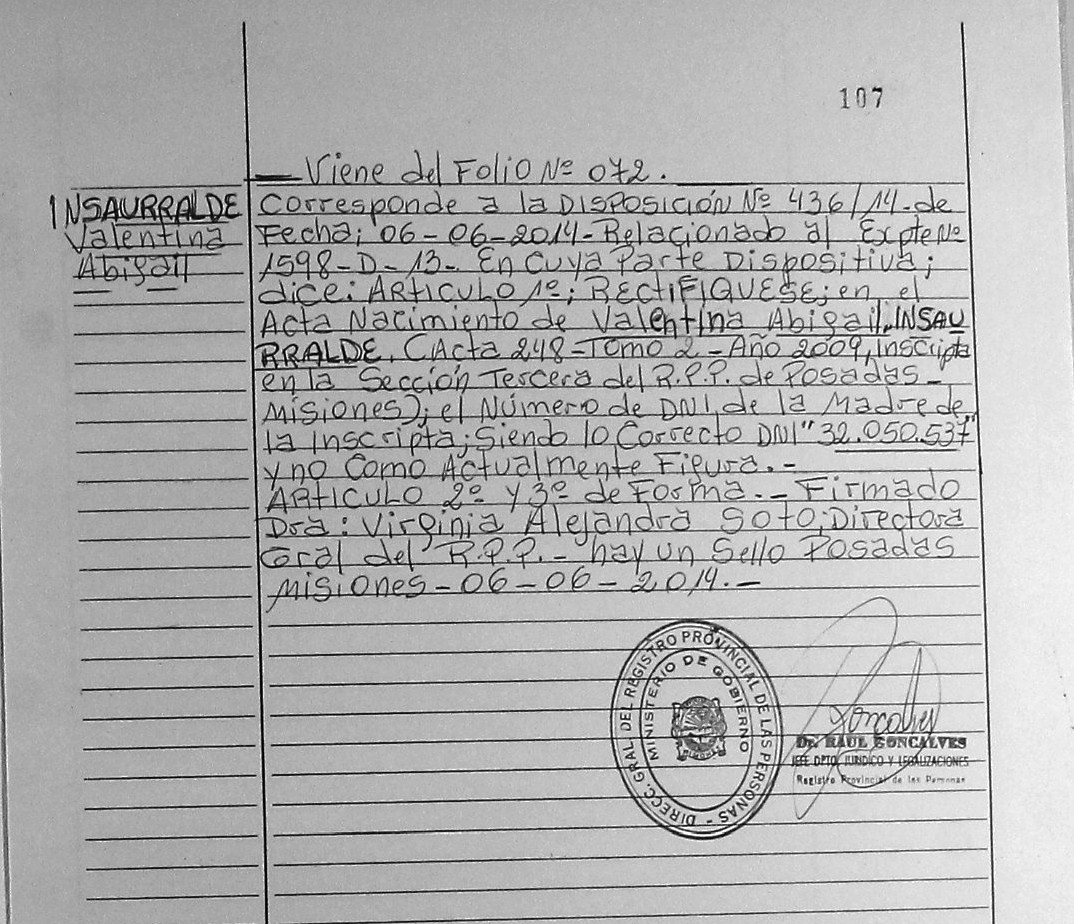 107
— Viene del Folio Nº 072.
INSAURRALDE
Valentina
Abigail
Corresponde a la DISPOSICIÓN Nº 436/14-de
Fecha; 06-06-2014-Relacionado al Expte Nº
1598-D-13-. En Cuya Parte Dispositiva;
dice: ARTICULO 1º; RECTIFIQUESE; en el
Acta Nacimiento de Valentina Abigail, INSAU
RRALDE, (Acta 248-Tomo 2-Año 2009, Inscripta
en la Sección Tercera del R.P.P. de Posadas-
Misiones); el Número de DNI, de la Madre de
la Inscripta; Siendo lo Correcto DNI "32.050.537"
y no Como Actualmente Figura.-
ARTICULO 2º y 3º de Forma.- Firmado
Dra: Virginia Alejandra Soto; Directora
Gral del R.P.P.- hay un Sello Posadas
Misiones-06-06-2,014.-
DIRECC. GRAL. DEL REGISTRO PROVINCIAL DE LAS PERSONAS -
MINISTERIO DE GOBIERNO
Goncalves
Dr. RAUL GONCALVES
JEFE DPTO. JURIDICO Y LEGALIZACIONES
Registro Provincial de las Personas